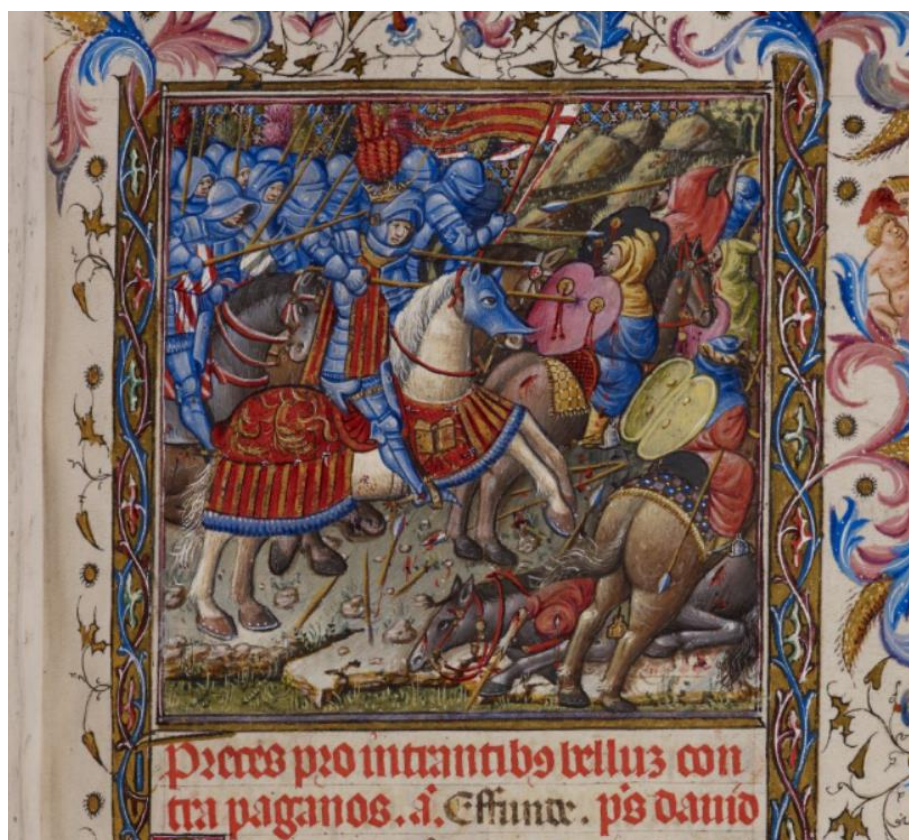 Preces pro intrantibꝯ belluʒ con
tra paganos. aᷓ. Effunde. p̄s dauid